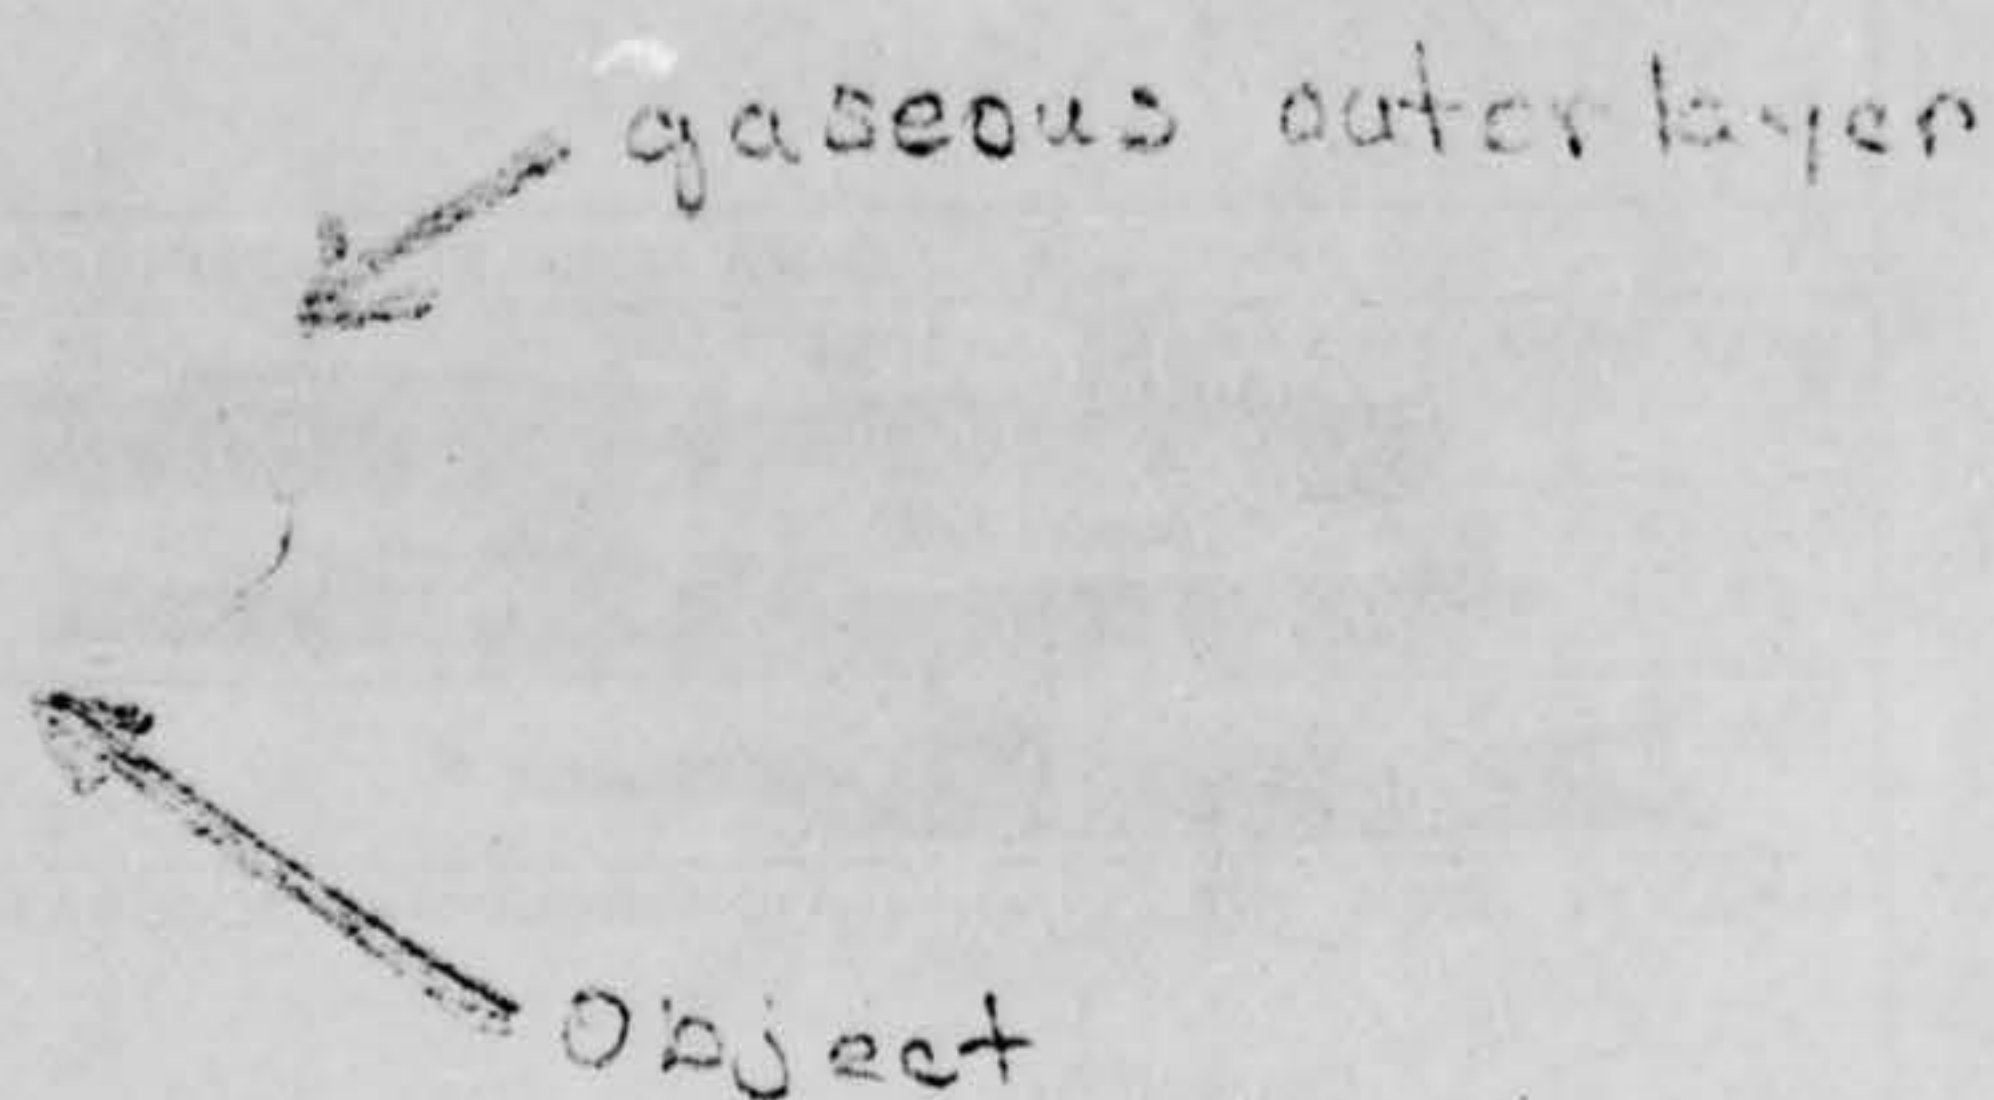 gaseous outer layer
Object